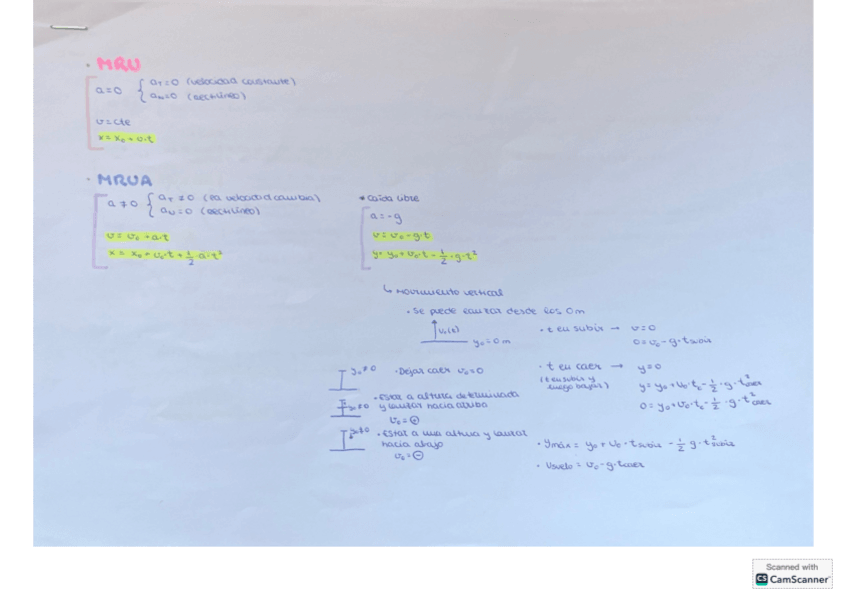 · MRU
a=0 { aT=0 (velocidad constante)
aN=0 (rectilíneo)
v=cte
x=x₀+v·t
· MRUA
a≠0 { aT≠0 (la velocidad cambia)
aN=0 (rectilíneo)
v=v₀+a·t
x=x₀+v₀·t+½·a·t²
* Caída libre
a=-g
v=v₀-g·t
y=y₀+v₀·t-½·g·t²
↳ Movimiento vertical
· Se puede lanzar desde los 0m
y₀=0m
· t en subir → v=0
0=v₀-g·tsubir
y₀≠0 · Dejar caer v₀=0
· Estar a altura determinada
y lanzar hacia arriba
v₀=⊕
· Estar a una altura y lanzar
hacia abajo
v₀=⊖
· t en caer → y=0
(t en subir y
luego bajar)
y=y₀+v₀·tc-½·g·t²caer
0=y₀+v₀·tc-½·g·t²caer
· ymáx=y₀+v₀·tsubir-½g·t²subir
· vsuelo=v₀-g·tcaer
Scanned with
CS CamScanner